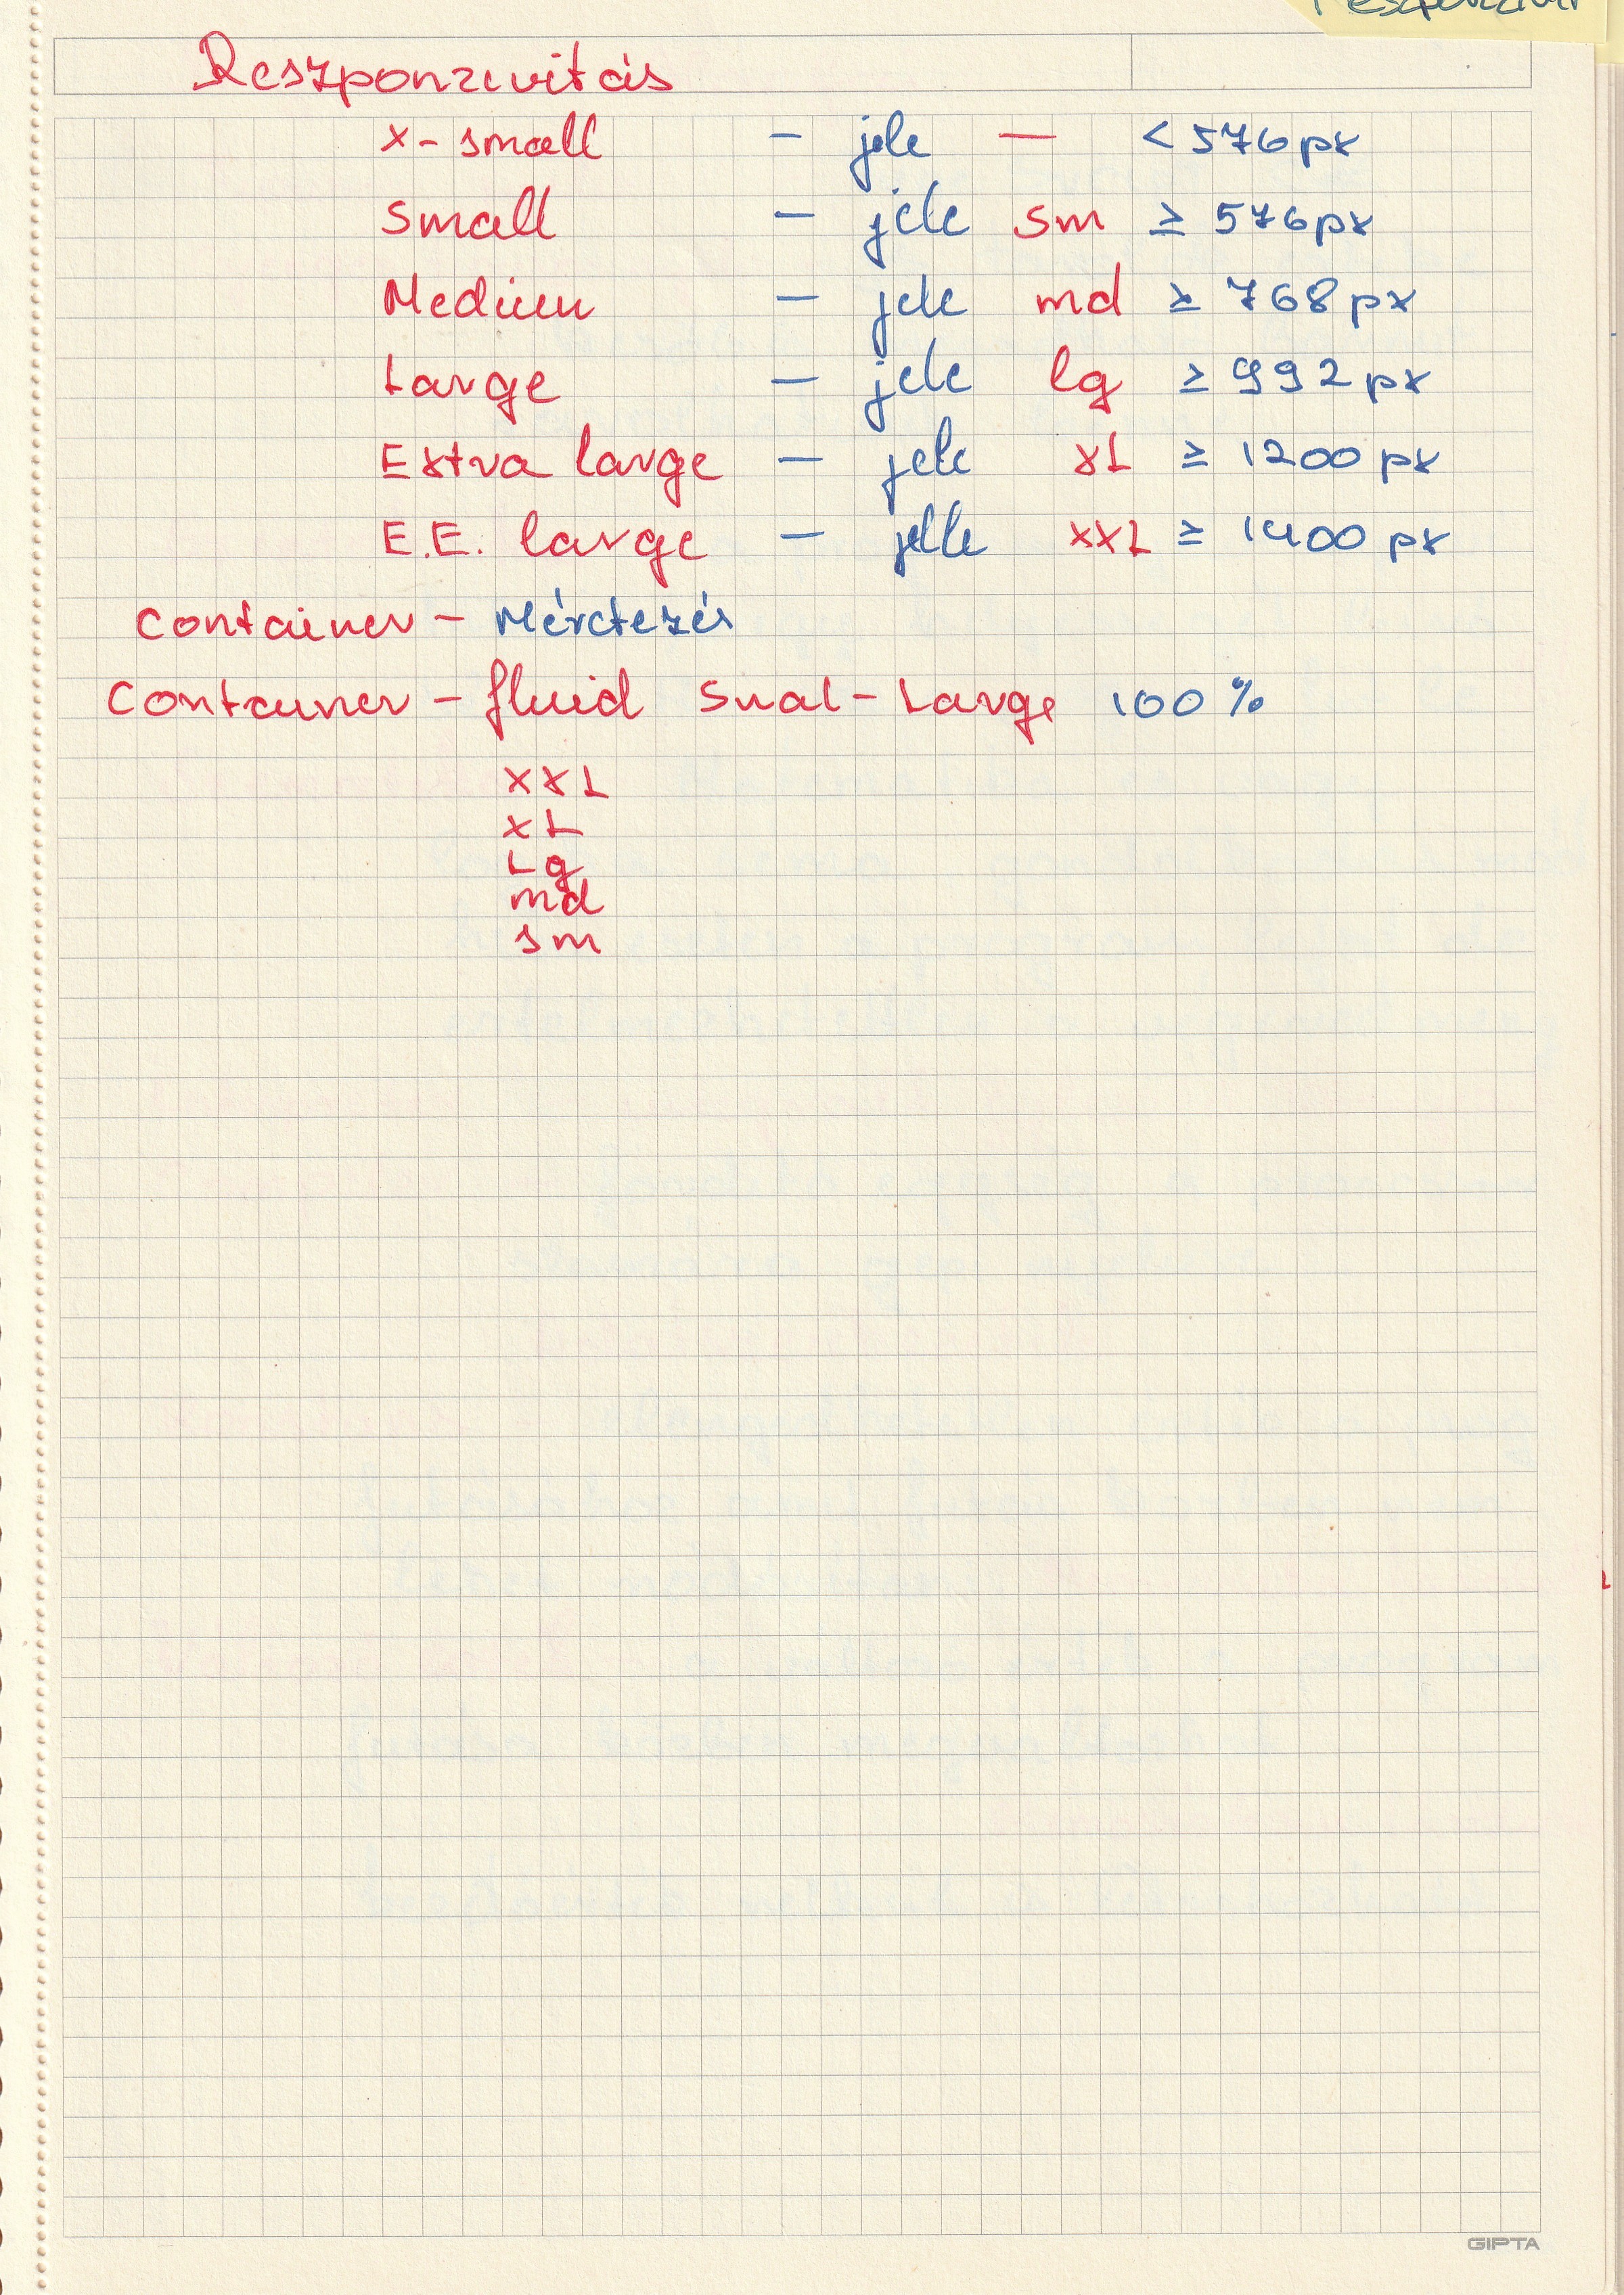 Reszponzivitás
x-small - jele — < 576 px
Small - jele sm ≥ 576 px
Medium - jele md ≥ 768 px
Large - jele lg ≥ 992 px
Extra large - jele xL ≥ 1200 px
E.E. large - jelle xxL ≥ 1400 px
Container - Méretezés
Container - fluid Smal - Large 100 %
xxL
xL
Lg
md
sm
GIPTA